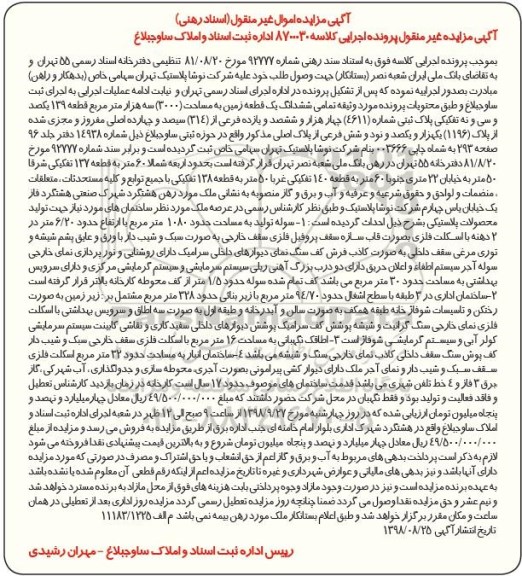 آگهی مزایده اموال غیر منقول (اسناد رهنی)
آگهی مزایده غیر منقول پرونده اجرایی کلاسه ۸۷۰۰۰۳۰ اداره ثبت اسناد و املاک ساوجبلاغ
بموجب پرونده اجرایی کلاسه فوق به استناد سند رهنی شماره ۹۲۷۷۷ مورخ ۸۱/۰۸/۲۰ تنظیمی دفترخانه اسناد رسمی ۵۵ تهران و
به تقاضای بانک ملی ایران شعبه نصر (بستانکار) جهت وصول طلب خود علیه شرکت نوشا پلاستیک تهران سهامی خاص (بدهکار و راهن)
مبادرت بصدور اجراییه نموده که پس از تشکیل پرونده در اداره اجرای اسناد رسمی تهران و نیابت ادامه عملیات اجرایی به اجرای ثبت
ساوجبلاغ و طبق محتویات پرونده مورد وثیقه تمامی ششدانگ یک قطعه زمین به مساحت (۳۰۰۰) سه هزار متر مربع قطعه ۱۳۹ یکصد
و سی و نه تفکیکی پلاک ثبتی شماره (۴۶۱۱) چهار هزار و ششصد و یازده فرعی از (۳۱۴) سیصد و چهارده اصلی مفروز و مجزی شده
از پلاک (۱۱۹۶) یکهزار و یکصد و نود و شش فرعی از پلاک اصلی مذکور واقع در حوزه ثبتی ساوجبلاغ ذیل شماره ۱۴۹۳۸ دفتر جلد ۹۶
صفحه ۲۹۳ به شماره چاپی ۰۰۳۶۶۶ بنام شرکت نوشا پلاستیک تهران سهامی خاص ثبت گردیده است و برابر سند رهنی شماره ۹۲۷۷۷ مورخ
۸۱/۸/۲۰ دفترخانه ۵۵ تهران در رهن بانک ملی شعبه نصر تهران قرار گرفته است بحدود اربعه شمالا ۶۰ متر به قطعه ۱۳۷ تفکیکی شرقا
۵۰ متر به خیابان ۲۲ متری جنوبا ۶۰ متر به قطعه ۱۴۰ تفکیکی غربا ۵۰ متر به قطعه ۱۳۸ تفکیکی با جمیع توابع و کلیه مستحدثات ، متعلقات
، منضمات و لواحق و حقوق شرعیه و عرفیه و آب و برق و گاز منصوبه به نشانی ملک مورد رهن هشتگرد شهرک صنعتی هشتگرد فاز
یک خیابان یاس چهارم شرکت نوشا پلاستیک و طبق نظر کارشناس رسمی در عرصه ملک مورد نظر ساختمان های مورد نیاز جهت تولید
محصولات پلاستیکی بشرح ذیل احداث گردیده است: ۱- سوله تولید به مساحت حدود ۱۰۸۰ متر مربع با ارتفاع حدود ۶/۲۰ متر در
۲ دهنه با اسکلت فلزی بصورت قاب سازه سقف پروفیل فلزی سقف خارجی به صورت سبک و شیب دار با ورق و عایق پشم شیشه و
توری مرغی سقف داخلی به صورت کاذب فرش کف سنگ نمای دیوارهای داخلی سرامیک دارای روشنایی و نور پردازی نمای خارجی
سوله آجر سیستم اطفاء و اعلان حریق دارای دو درب بزرگ آهنی ریلی سیستم سرمایشی و سیستم گرمایشی مرکزی و دارای سرویس
بهداشتی به مساحت حدود ۳۰ متر مربع می باشد کف تمام شده سوله حدود ۱/۵ متر از کف محوطه کارخانه بالاتر قرار گرفته است
۲-ساختمان اداری در ۳ طبقه با سطح اشغال حدود ۹۴/۷۰ متر مربع با زیر بنای حدود ۳۲۸ متر مربع مشتمل بر : زیر زمین به صورت
رختکن و تاسیسات شوفاژ خانه طبقه همکف به صورت سالن و آبدارخانه و طبقه اول به صورت سه اطاق و سرویس بهداشتی با اسکلت
فلزی نمای خارجی سنگ گرانیت و شیشه پوشش کف سرامیک پوشش دیوارهای داخلی سفید کاری و نقاشی کابینت سیستم سرمایشی
کولر آبی و سیستم گرمایشی شوفاژ است ۳-اطاقک نگهبانی به مساحت ۱۶ متر مربع با اسکلت فلزی سقف خارجی سبک و شیب دار
کف پوش سنگ سقف داخلی کاذب نمای خارجی سنگ و شیشه می باشد ۴-ساختمان انبار به مساحت حدود ۳۲ متر مربع اسکلت فلزی
سقف سبک و شیب دار و نمای آجر ملک دارای دیوار کشی پیرامونی بصورت آجری، محوطه سازی و جدولگذاری ، آب شهرکی، گاز
برق ۳ فاز و ۴ خط تلفن شهری می باشد قدمت ساختمان های موصوف حدود ۱۷ سال است کارخانه در زمان بازدید کارشناس تعطیل
و فاقد فعالیت و تولید بود و فقط نگهبان در محل شرکت حضور داشتند که مبلغ ۴۹/۵۰۰/۰۰۰/۰۰۰ ریال معادل چهار میلیارد و نهصد و
پنجاه میلیون تومان ارزیابی شده که در روز چهارشنبه مورخ ۱۳۹۸/۹/۲۷ از ساعت ۹ صبح الی ۱۲ ظهر در شعبه اجرای اداره ثبت اسناد و
املاک ساوجبلاغ واقع در هشتگرد شهرک اداری بلوار امام خامنه ای جنب اداره برق از طریق مزایده به فروش می رسد و مزایده از مبلغ
۴۹/۵۰۰/۰۰۰/۰۰۰ ریال معادل چهار میلیارد و نهصد و پنجاه میلیون تومان شروع و به بالاترین قیمت پیشنهادی نقدا فروخته می شود
لازم به ذکر است پرداخت بدهی های مربوط به آب و برق و گاز اعم از حق انشعاب و یا حق اشتراک و مصرف در صورتی که مورد مزایده
دارای آنها باشد و نیز بدهی های مالیاتی و عوارض شهرداری و غیره تا تاریخ مزایده اعم از اینکه رقم قطعی آن معلوم شده یا نشده باشد
به عهده برنده مزایده است و نیز در صورت وجود مازاد وجوه پرداختی بابت هزینه های فوق از محل مازاد به برنده مسترد خواهد شد
و نیم عشر و حق مزایده نقدا وصول می گردد ضمنا چنانچه روز مزایده تعطیل رسمی گردد مزایده روز اداری بعد از تعطیلی در همان
ساعت و مکان مقرر برگزار خواهد شد و طبق اعلام بستانکار ملک مورد رهن بیمه نمی باشد م الف ۱۱۱۸۳/۱۲۲۵
تاریخ انتشار آگهی ۱۳۹۸/۰۸/۲۵
رییس اداره ثبت اسناد و املاک ساوجبلاغ - مهران رشیدی